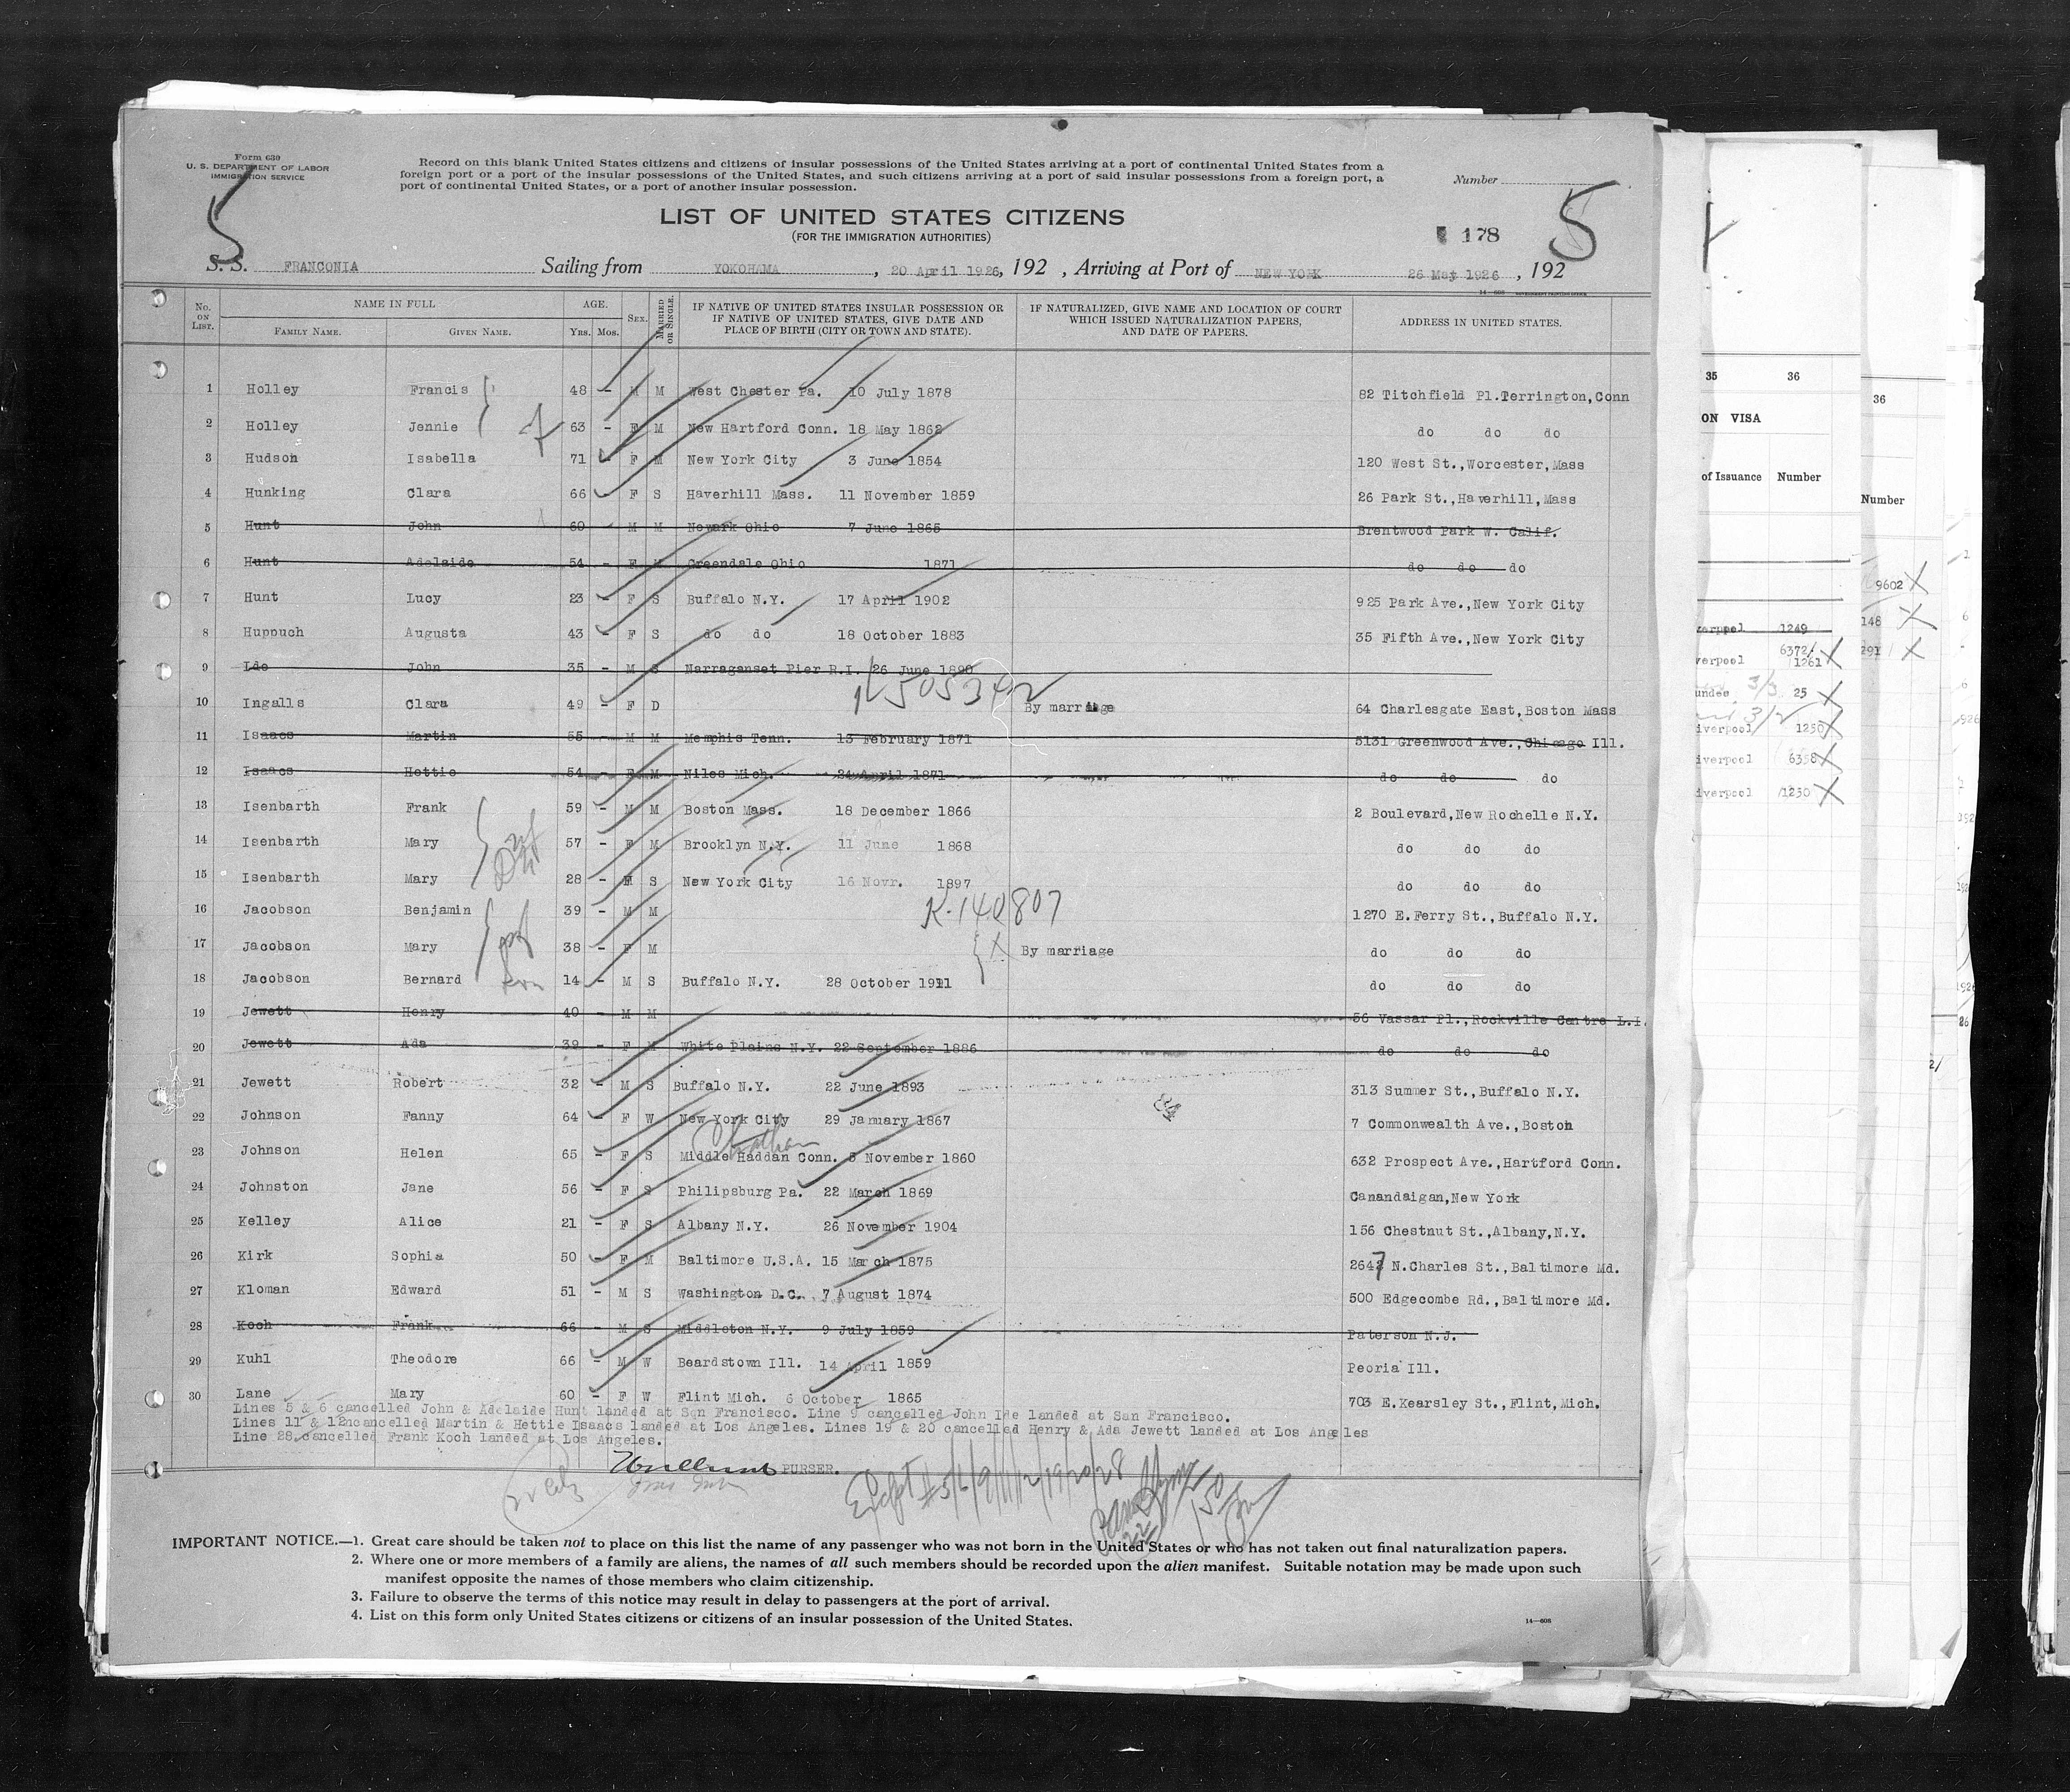 Form 630
U. S. DEPARTMENT OF LABOR
IMMIGRATION SERVICE
Record on this blank United States citizens and citizens of insular possessions of the United States arriving at a port of continental United States from a
foreign port or a port of the insular possessions of the United States, and such citizens arriving at a port of said insular possessions from a foreign port, a
port of continental United States, or a port of another insular possession.
Number
5
5
LIST OF UNITED STATES CITIZENS
(FOR THE IMMIGRATION AUTHORITIES)
178
S. S. FRANCONIA Sailing from YOKOHAMA, 20 April 1926, 192 , Arriving at Port of NEW YORK 26 May 1926, 192
No. ON LIST. NAME IN FULL FAMILY NAME. GIVEN NAME. AGE. Yrs. Mos. SEX. MARRIED OR SINGLE. IF NATIVE OF UNITED STATES INSULAR POSSESSION OR IF NATIVE OF UNITED STATES, GIVE DATE AND PLACE OF BIRTH (CITY OR TOWN AND STATE). IF NATURALIZED, GIVE NAME AND LOCATION OF COURT WHICH ISSUED NATURALIZATION PAPERS, AND DATE OF PAPERS. ADDRESS IN UNITED STATES.
1 Holley Francis 48 - M M West Chester Pa. 10 July 1878 82 Titchfield Pl.Terrington,Conn
2 Holley Jennie 63 - F M New Hartford Conn. 18 May 1862 do do do
3 Hudson Isabella 71 - F M New York City 3 June 1854 120 West St.,Worcester,Mass
4 Hunking Clara 66 - F S Haverhill Mass. 11 November 1859 26 Park St.,Haverhill,Mass
5 Hunt John 60 - M M Newark Ohio 7 June 1865 Brentwood Park W. Calif.
6 Hunt Adelaide 54 - F M Greendale Ohio 1871 do do do
7 Hunt Lucy 23 - F S Buffalo N.Y. 17 April 1902 925 Park Ave.,New York City
8 Huppuch Augusta 43 - F S do do 18 October 1883 35 Fifth Ave.,New York City
9 Ide John 35 - M S Narraganset Pier R.I. 26 June 1890
10 Ingalls Clara 49 - F D By marriage 64 Charlesgate East,Boston Mass
11 Isaacs Martin 55 - M M Memphis Tenn. 13 February 1871 5131 Greenwood Ave.,Chicago Ill.
12 Isaacs Hettie 54 - F M Niles Mich. 24 April 1871 do do do
13 Isenbarth Frank 59 - M M Boston Mass. 18 December 1866 2 Boulevard,New Rochelle N.Y.
14 Isenbarth Mary 57 - F M Brooklyn N.Y. 11 June 1868 do do do
15 Isenbarth Mary 28 - F S New York City 16 Novr. 1897 do do do
16 Jacobson Benjamin 39 - M M K-140807 1270 E.Ferry St.,Buffalo N.Y.
17 Jacobson Mary 38 - F M By marriage do do do
18 Jacobson Bernard 14 - M S Buffalo N.Y. 28 October 1911 do do do
19 Jewett Henry 40 - M M 56 Vassar Pl.,Rockville Centre L.I.
20 Jewett Ada 39 - F M White Plains N.Y. 22 September 1886 do do do
21 Jewett Robert 32 - M S Buffalo N.Y. 22 June 1893 313 Summer St.,Buffalo N.Y.
22 Johnson Fanny 64 - F W New York City 29 January 1867 7 Commonwealth Ave.,Boston
Chatham
23 Johnson Helen 65 - F S Middle Haddan Conn. 5 November 1860 632 Prospect Ave.,Hartford Conn.
24 Johnston Jane 56 - F S Philipsburg Pa. 22 March 1869 Canandaigan,New York
25 Kelley Alice 21 - F S Albany N.Y. 26 November 1904 156 Chestnut St.,Albany,N.Y.
26 Kirk Sophia 50 - F M Baltimore U.S.A. 15 March 1875 2647 N.Charles St.,Baltimore Md.
27 Kloman Edward 51 - M S Washington D.C. 7 August 1874 500 Edgecombe Rd.,Baltimore Md.
28 Koch Frank 66 - M S Middleton N.Y. 9 July 1859 Paterson N.J.
29 Kuhl Theodore 66 - M W Beardstown Ill. 14 April 1859 Peoria Ill.
30 Lane Mary 60 - F W Flint Mich. 6 October 1865 703 E.Kearsley St.,Flint,Mich.
Lines 5 & 6 cancelled John & Adelaide Hunt landed at San Francisco. Line 9 cancelled John Ide landed at San Francisco.
Lines 11 & 12 cancelled Martin & Hettie Isaacs landed at Los Angeles. Lines 19 & 20 cancelled Henry & Ada Jewett landed at Los Angeles
Line 28 cancelled Frank Koch landed at Los Angeles.
PURSER.
Except #5/6/9/11/12/19/20/28
IMPORTANT NOTICE.—1. Great care should be taken not to place on this list the name of any passenger who was not born in the United States or who has not taken out final naturalization papers.
2. Where one or more members of a family are aliens, the names of all such members should be recorded upon the alien manifest. Suitable notation may be made upon such
manifest opposite the names of those members who claim citizenship.
3. Failure to observe the terms of this notice may result in delay to passengers at the port of arrival.
4. List on this form only United States citizens or citizens of an insular possession of the United States.
14—608
35 36
ON VISA
of Issuance Number
1249
6372
verpool 1261
undee 25
iverpool 1250
iverpool 6358
iverpool 1230
36
Number
9602
148
291